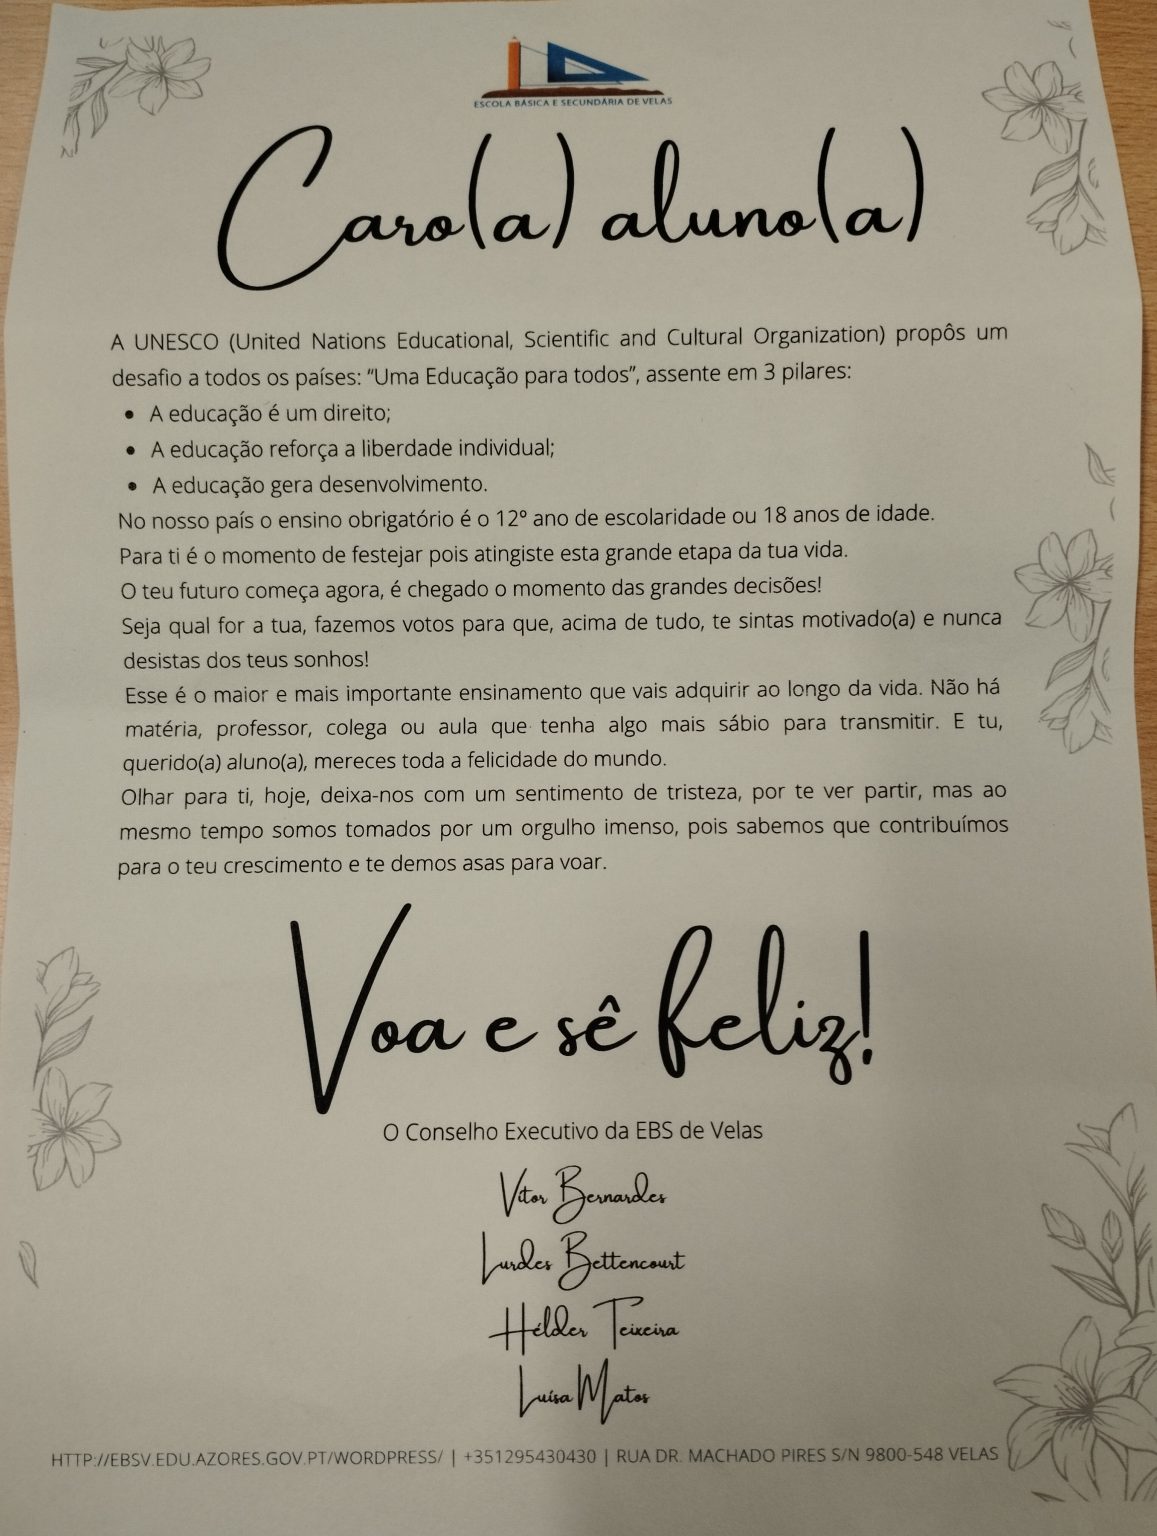 ESCOLA BÁSICA E SECUNDÁRIA DE VELAS
Caro(a) aluno(a)
A UNESCO (United Nations Educational, Scientific and Cultural Organization) propôs um
desafio a todos os países: “Uma Educação para todos”, assente em 3 pilares:
• A educação é um direito;
• A educação reforça a liberdade individual;
• A educação gera desenvolvimento.
No nosso país o ensino obrigatório é o 12º ano de escolaridade ou 18 anos de idade.
Para ti é o momento de festejar pois atingiste esta grande etapa da tua vida.
O teu futuro começa agora, é chegado o momento das grandes decisões!
Seja qual for a tua, fazemos votos para que, acima de tudo, te sintas motivado(a) e nunca
desistas dos teus sonhos!
Esse é o maior e mais importante ensinamento que vais adquirir ao longo da vida. Não há
matéria, professor, colega ou aula que tenha algo mais sábio para transmitir. E tu,
querido(a) aluno(a), mereces toda a felicidade do mundo.
Olhar para ti, hoje, deixa-nos com um sentimento de tristeza, por te ver partir, mas ao
mesmo tempo somos tomados por um orgulho imenso, pois sabemos que contribuímos
para o teu crescimento e te demos asas para voar.
Voa e sê feliz!
O Conselho Executivo da EBS de Velas
Vítor Bernardes
Lurdes Bettencourt
Hélder Teixeira
Luísa Matos
HTTP://EBSV.EDU.AZORES.GOV.PT/WORDPRESS/ | +351295430430 | RUA DR. MACHADO PIRES S/N 9800-548 VELAS